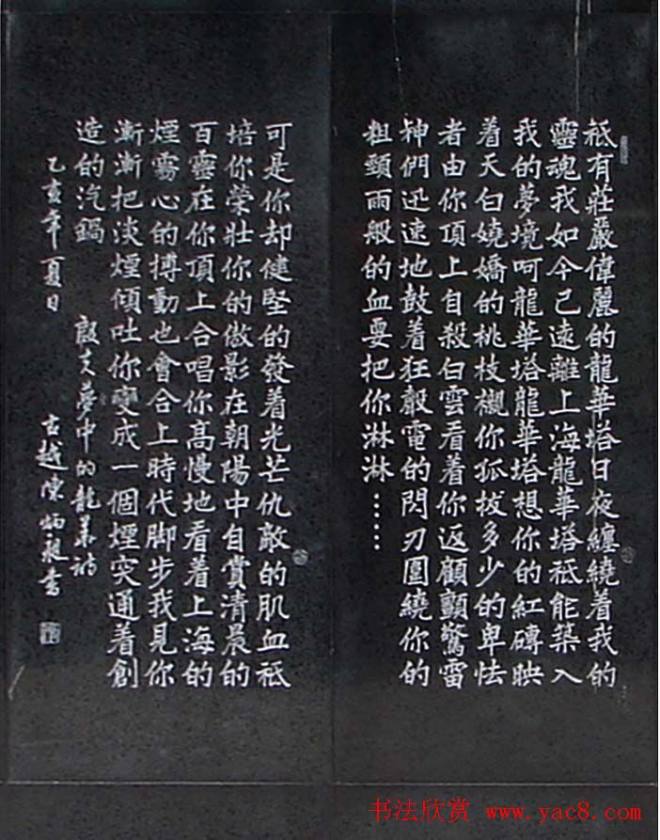 祗有莊嚴偉麗的龍華塔日夜纏繞着我的
靈魂我如今已遠離上海龍華塔祗能築入
我的夢境呵龍華塔龍華塔想你的紅磚映
着天白嬈嬌的桃枝櫬你孤拔多少的卑怯
者由你頂上自殺白雲看着你返顧顫驚雷
神們迅速地鼓着狂殸電的閃刃圍繞你的
粗頸雨般的血要把你淋淋……
可是你却健堅的發着光芒仇敵的肌血祗
培你榮壯你的傲影在朝陽中自賞清晨的
百靈在你頂上合唱你高慢地看着上海的
煙霧心的搏動也會合上時代脚步我見你
漸漸把淡煙傾吐你變成一個煙突通着創
造的汽鍋
殷夫夢中的龍華詩
乙亥年夏日
古越陳炳昶書
书法欣赏 www.yac8.com